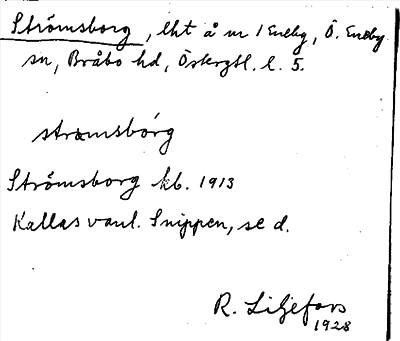 Strömsborg, lht å nr 1 Eneby, Ö. Eneby
sn, Bråbo hd, Östergtl. l. 5.
strömsbórg
Strömsborg kb. 1913
Kallas vanl. Snippen, se d.
R. Liljefors
1928